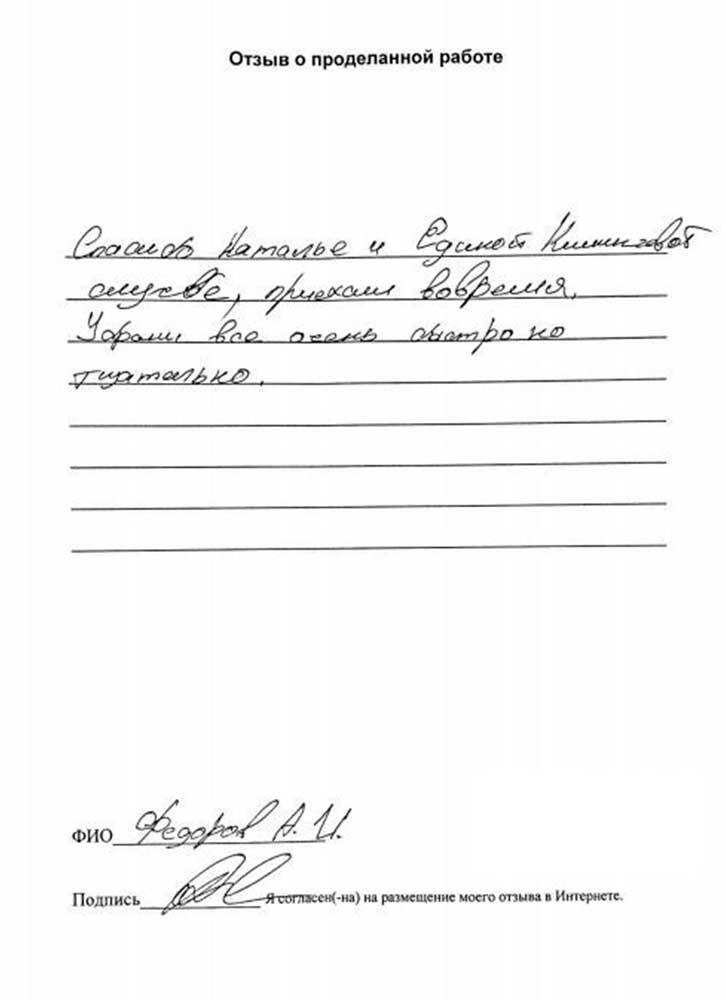 Отзыв о проделанной работе
Спасибо Наталье и Единой Клининговой
службе, приехали вовремя.
Убрали все очень быстро но
тщательно.
ФИО Федоров А. И.
Подпись Я согласен(-на) на размещение моего отзыва в Интернете.